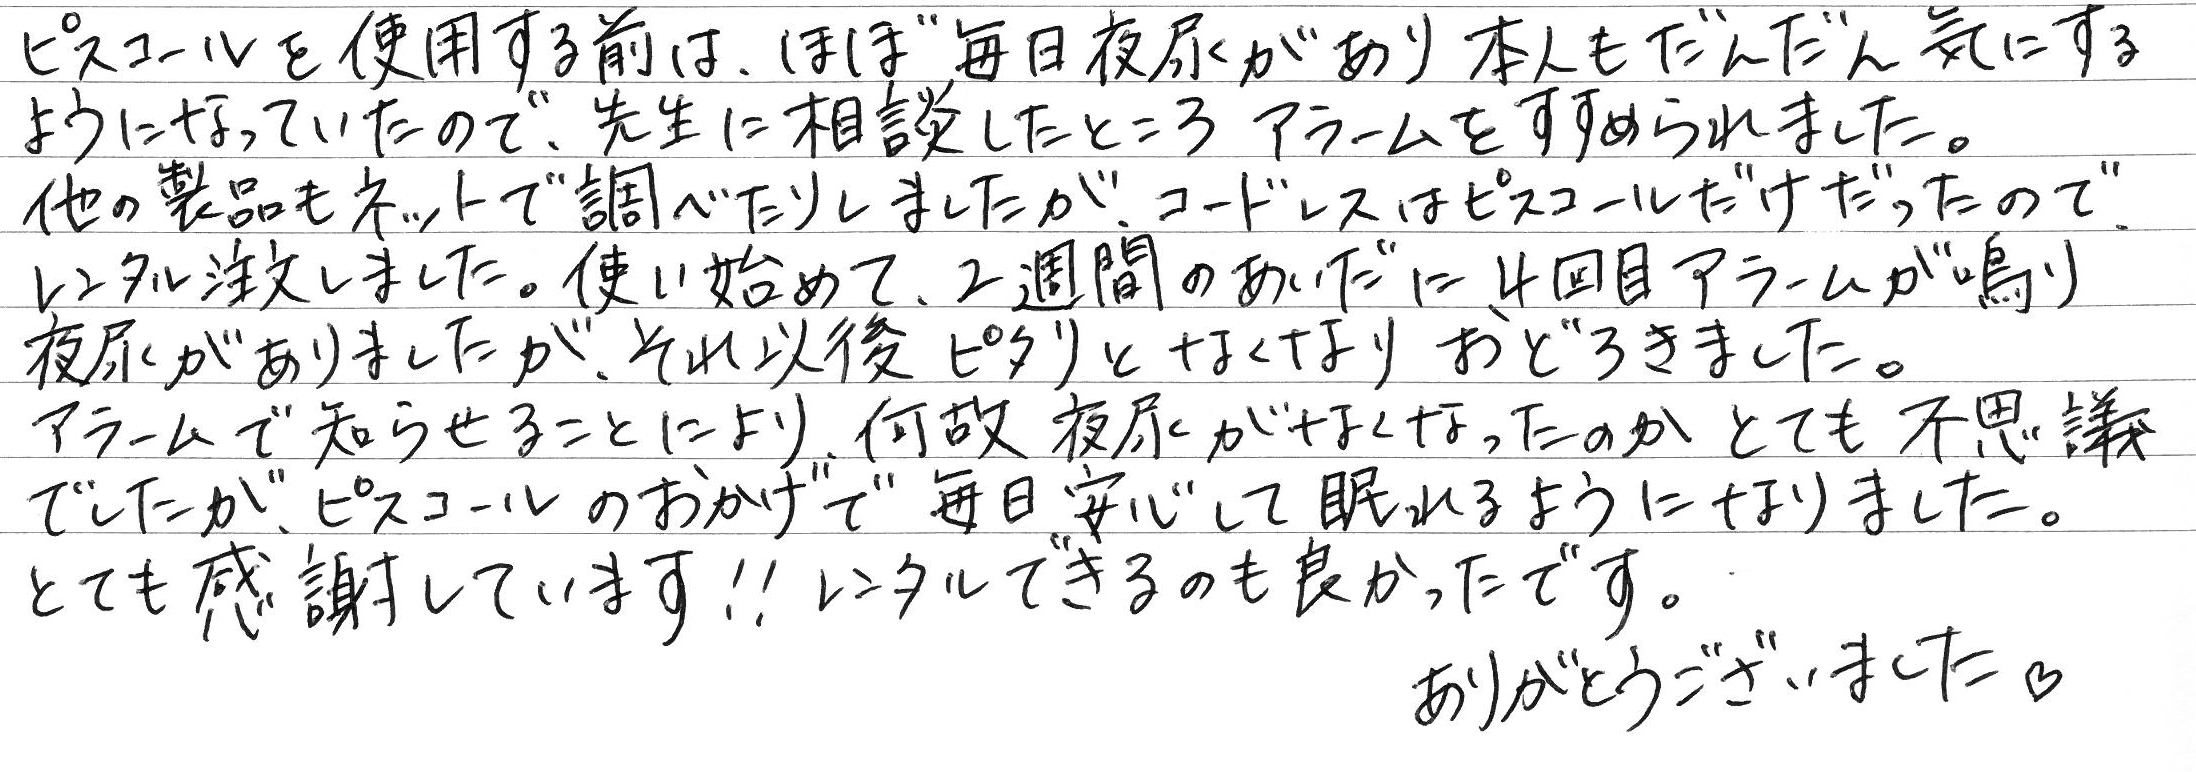 ピスコールを使用する前は、ほぼ毎日夜尿があり本人もだんだん気にする
ようになっていたので、先生に相談したところアラームをすすめられました。
他の製品もネットで調べたりしましたが、コードレスはピスコールだけだったので、
レンタル注文しました。使い始めて、2週間のあいだに4回目アラームが鳴り
夜尿がありましたが、それ以後ピタリとなくなりおどろきました。
アラームで知らせることにより、何故夜尿がなくなったのかとても不思議
でしたが、ピスコールのおかげで毎日安心して眠れるようになりました。
とても感謝しています!! レンタルできるのも良かったです。
ありがとうございました♡